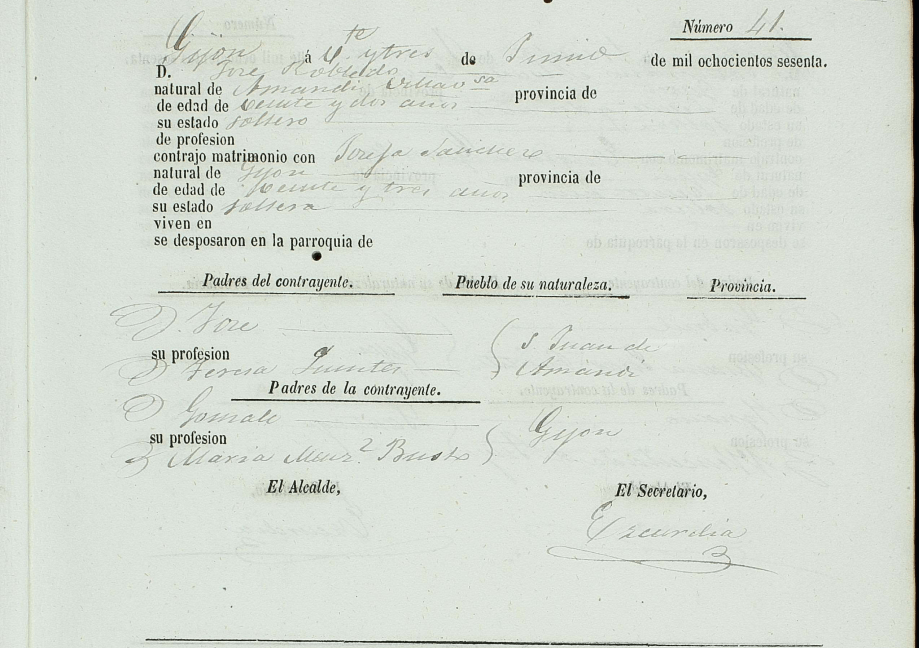 Número 41.
Gijon á Vte y tres de Junio de mil ochocientos sesenta.
D. Jose Robledo
natural de Amandi provincia de
de edad de Veinte y dos años
su estado soltero
de profesion
contrajo matrimonio con Josefa Sanchez
natural de Gijon provincia de
de edad de Veinte y tres años
su estado soltera
viven en
se desposaron en la parroquia de
Padres del contrayente. Pueblo de su naturaleza. Provincia.
D. Jose
su profesion S Juan de
D Teresa Amandi
Padres de la contrayente.
D Gonzalo
su profesion Gijon
Maria Busto
El Alcalde, El Secretario,
Ezcurdia